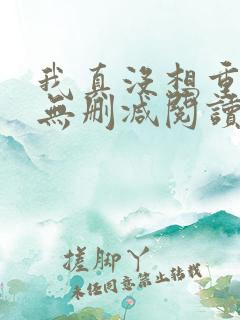 我真没想重
無删减閱讀
搓脚丫
未经同意禁止转载